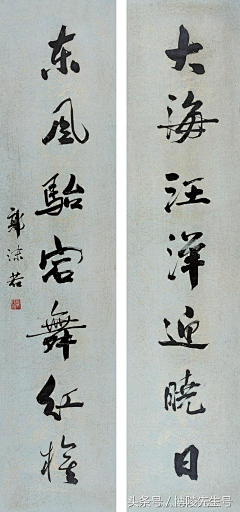 大海汪洋迎曉日
东風駘宕舞紅
郭沫若
头条号／博陵先生号